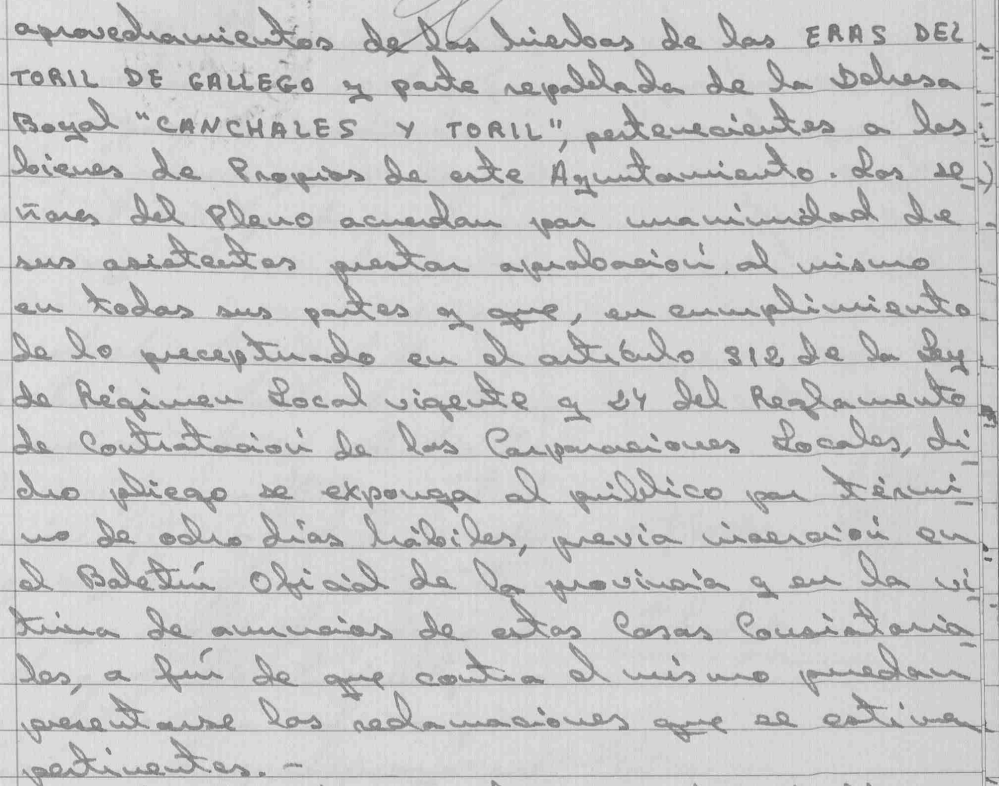 aprovechamientos de las hierbas de las ERAS DEL
TORIL DE GALLEGO y parte repoblada de la Dehesa
Boyal "CANCHALES Y TORIL", pertenecientes a los
bienes de Propios de este Ayuntamiento. Los se
ñores del Pleno acuerdan por unanimidad de
sus asistentes prestar aprobación al mismo
en todas sus partes y que, en cumplimiento
de lo preceptuado en el artículo 312 de la Ley
de Régimen Local vigente y 24 del Reglamento
de Contratación de las Corporaciones Locales, di
cho pliego se exponga al público por térmi
no de ocho días hábiles, previa inserción en
el Boletín Oficial de la provincia y en la vi
trina de anuncios de estas Casas Consistoria
les, a fín de que contra el mismo puedan
presentarse las reclamaciones que se estimen
pertinentes. -